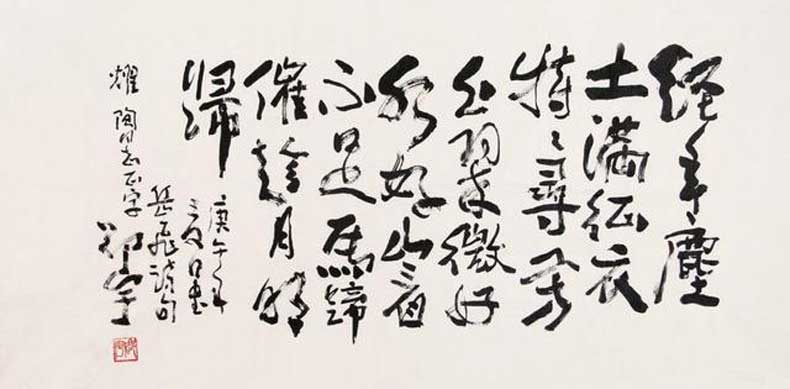 經年塵
土滿征衣
特々尋芳
上翠微好
水好山看
不足馬蹄
催趁月明
歸
庚午年
岳飛詩句
耀陶同志正字